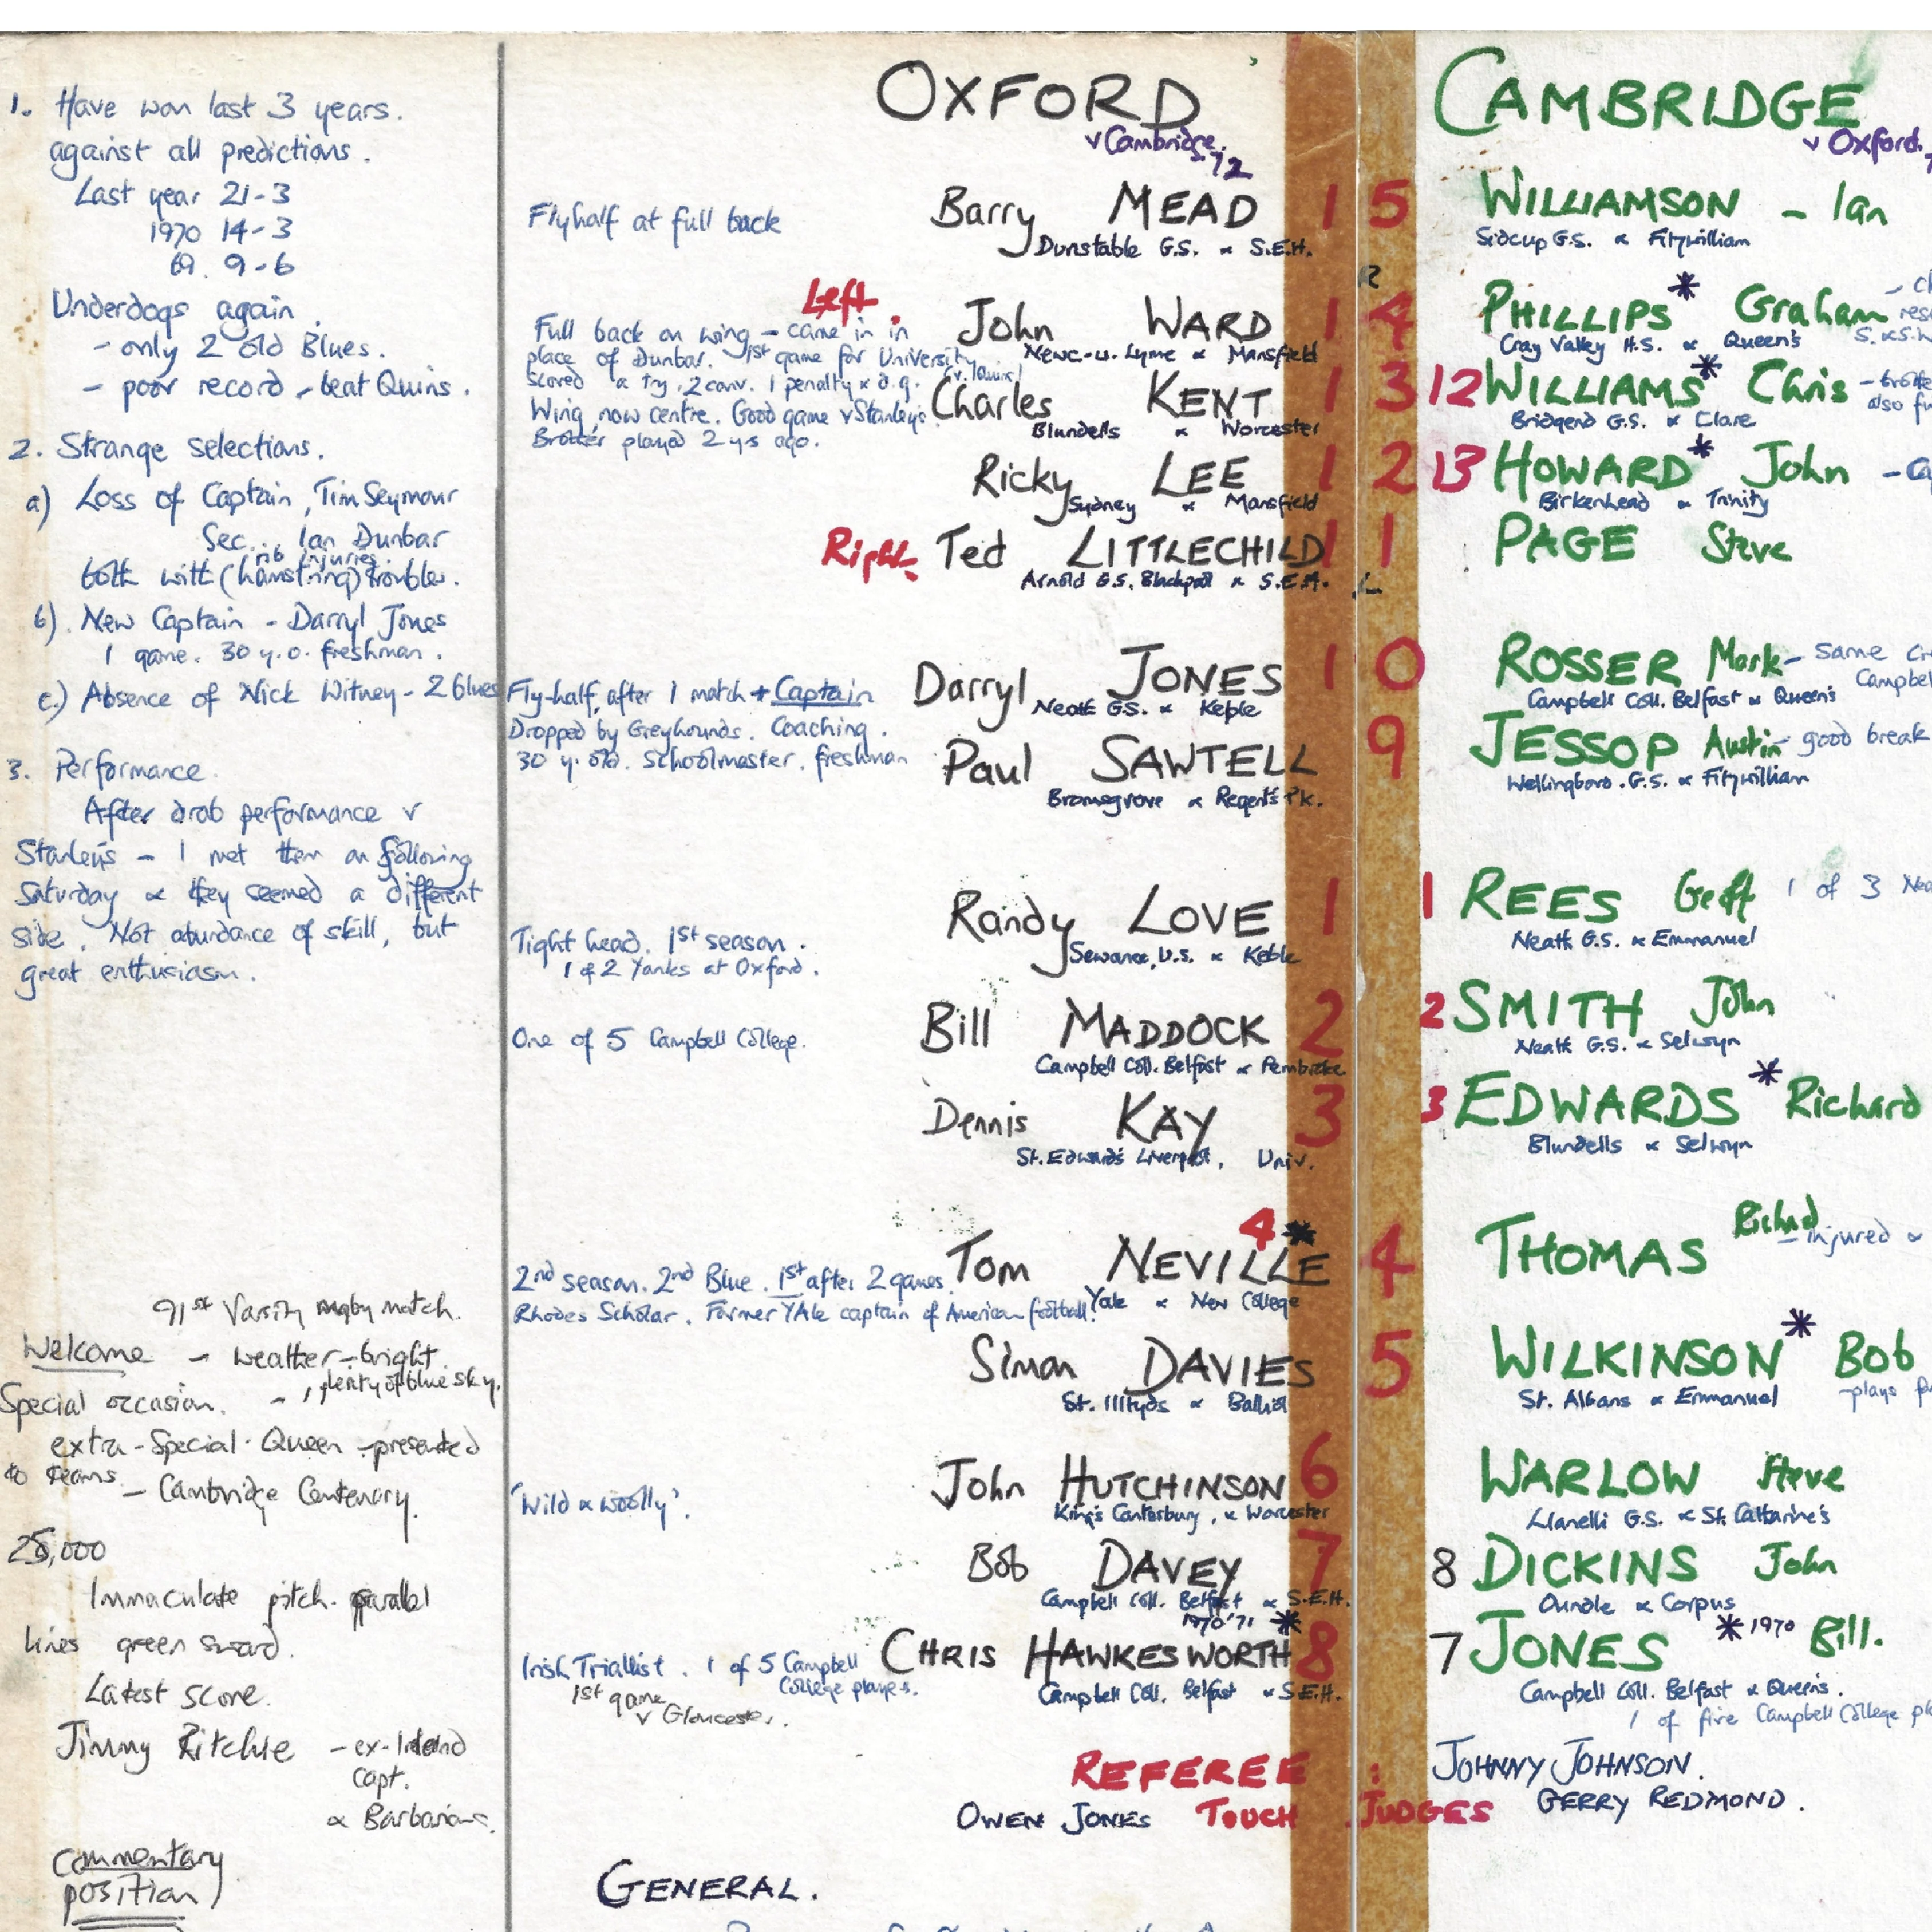 1. Have won last 3 years.
against all predictions.
Last year 21-3
1970 14-3
69. 9-6
Underdogs again.
- only 2 old Blues.
- poor record - beat Quins.
2. Strange selections.
a) Loss of Captain, Tim Seymour
Sec... Ian Dunbar
rib injuries
both with (hamstring) trouble.
b). New Captain - Darryl Jones
1 game. 30 y.o. freshman.
c) Absence of Nick Witney - 2 Blues
3. Performance.
After drab performance v
Stanley's - I met them on following
Saturday & they seemed a different
side. Not abundance of skill, but
great enthusiasm.
91st Varsity rugby match.
Welcome - weather - bright.
, plenty of blue sky.
Special occasion. -
extra-Special. Queen - presented
to teams.
- Cambridge Centenary.
25,000
Immaculate pitch. parallel
lines green sward.
Latest score.
Jimmy Ritchie - ex-Ireland
capt.
& Barbarians.
Commentary
position
OXFORD
v Cambridge. 72
Flyhalf at full back
Barry MEAD 15
Dunstable G.S. & S.E.H.
Left.
Full back on wing - came in in
place of Dunbar. 1st game for University
scored a try, 2 conv. 1 penalty & d.g.
John WARD 14
Newc-u. Lyme & Mansfield
Wing now centre. Good game v Stanley's.
Brother played 2 yrs ago.
Charles KENT 13
Blundells & Worcester
Ricky LEE 12
Sydney & Mansfield
Right. Ted LITTLECHILD 11
Arnold G.S. Blackpool & S.E.H. L
Fly-half, after 1 match + Captain
Dropped by Greyhounds. Coaching.
30 y. old. Schoolmaster. freshman
Darryl JONES 10
Neath G.S. & Keble
Paul SAWTELL 9
Bromsgrove & Regent's Pk.
Tight head. 1st season.
1 of 2 Yanks at Oxford.
Randy LOVE 1
Sewanee, U.S. & Keble
One of 5 Campbell College.
Bill MADDOCK 2
Campbell Coll. Belfast & Pembroke
Dennis KAY 3
St. Edward's Liverpool, Univ.
2nd season. 2nd Blue. 1st after 2 games.
Rhodes Scholar. Former YAle captain of American football!
4 *
Tom NEVILLE 4
Yale & New College
Simon DAVIES 5
St. Illtyds & Balliol
'Wild & woolly'.
John HUTCHINSON 6
King's Canterbury, & Worcester
Bob DAVEY 7
Campbell Coll. Belfast & S.E.H.
1970 '71 *
Irish Triallist. 1 of 5 Campbell
College players.
1st game
v Gloucester.
CHRIS HAWKESWORTH 8
Campbell Coll. Belfast & S.E.H.
REFEREE : JOHNNY JOHNSON.
OWEN JONES TOUCH JUDGES GERRY REDMOND.
GENERAL.
CAMBRIDGE
v Oxford.
WILLIAMSON - Ian
Sidcup G.S. & Fitzwilliam
R
PHILLIPS * Graham
Cray Valley H.S. & Queen's
12 WILLIAMS * Chris
also
Bridgend G.S. & Clare
13 HOWARD * John
Birkenhead & Trinity
PAGE Steve
ROSSER Mark - same
Campbel
Campbell Coll. Belfast & Queen's
JESSOP Austin - good break
Wellingboro. G.S. & Fitzwilliam
1 REES Geff 1 of 3
Neath G.S. & Emmanuel
2 SMITH John
Neath G.S. & Selwyn
3 EDWARDS * Richard
Blundells & Selwyn
THOMAS Richard
- injured &
WILKINSON * Bob
- plays
St. Albans & Emmanuel
WARLOW Steve
Llanelli G.S. & St. Catharine's
8 DICKINS John
Oundle & Corpus
7 JONES * 1970 Bill.
Campbell Coll. Belfast & Queens.
1 of five Campbell College